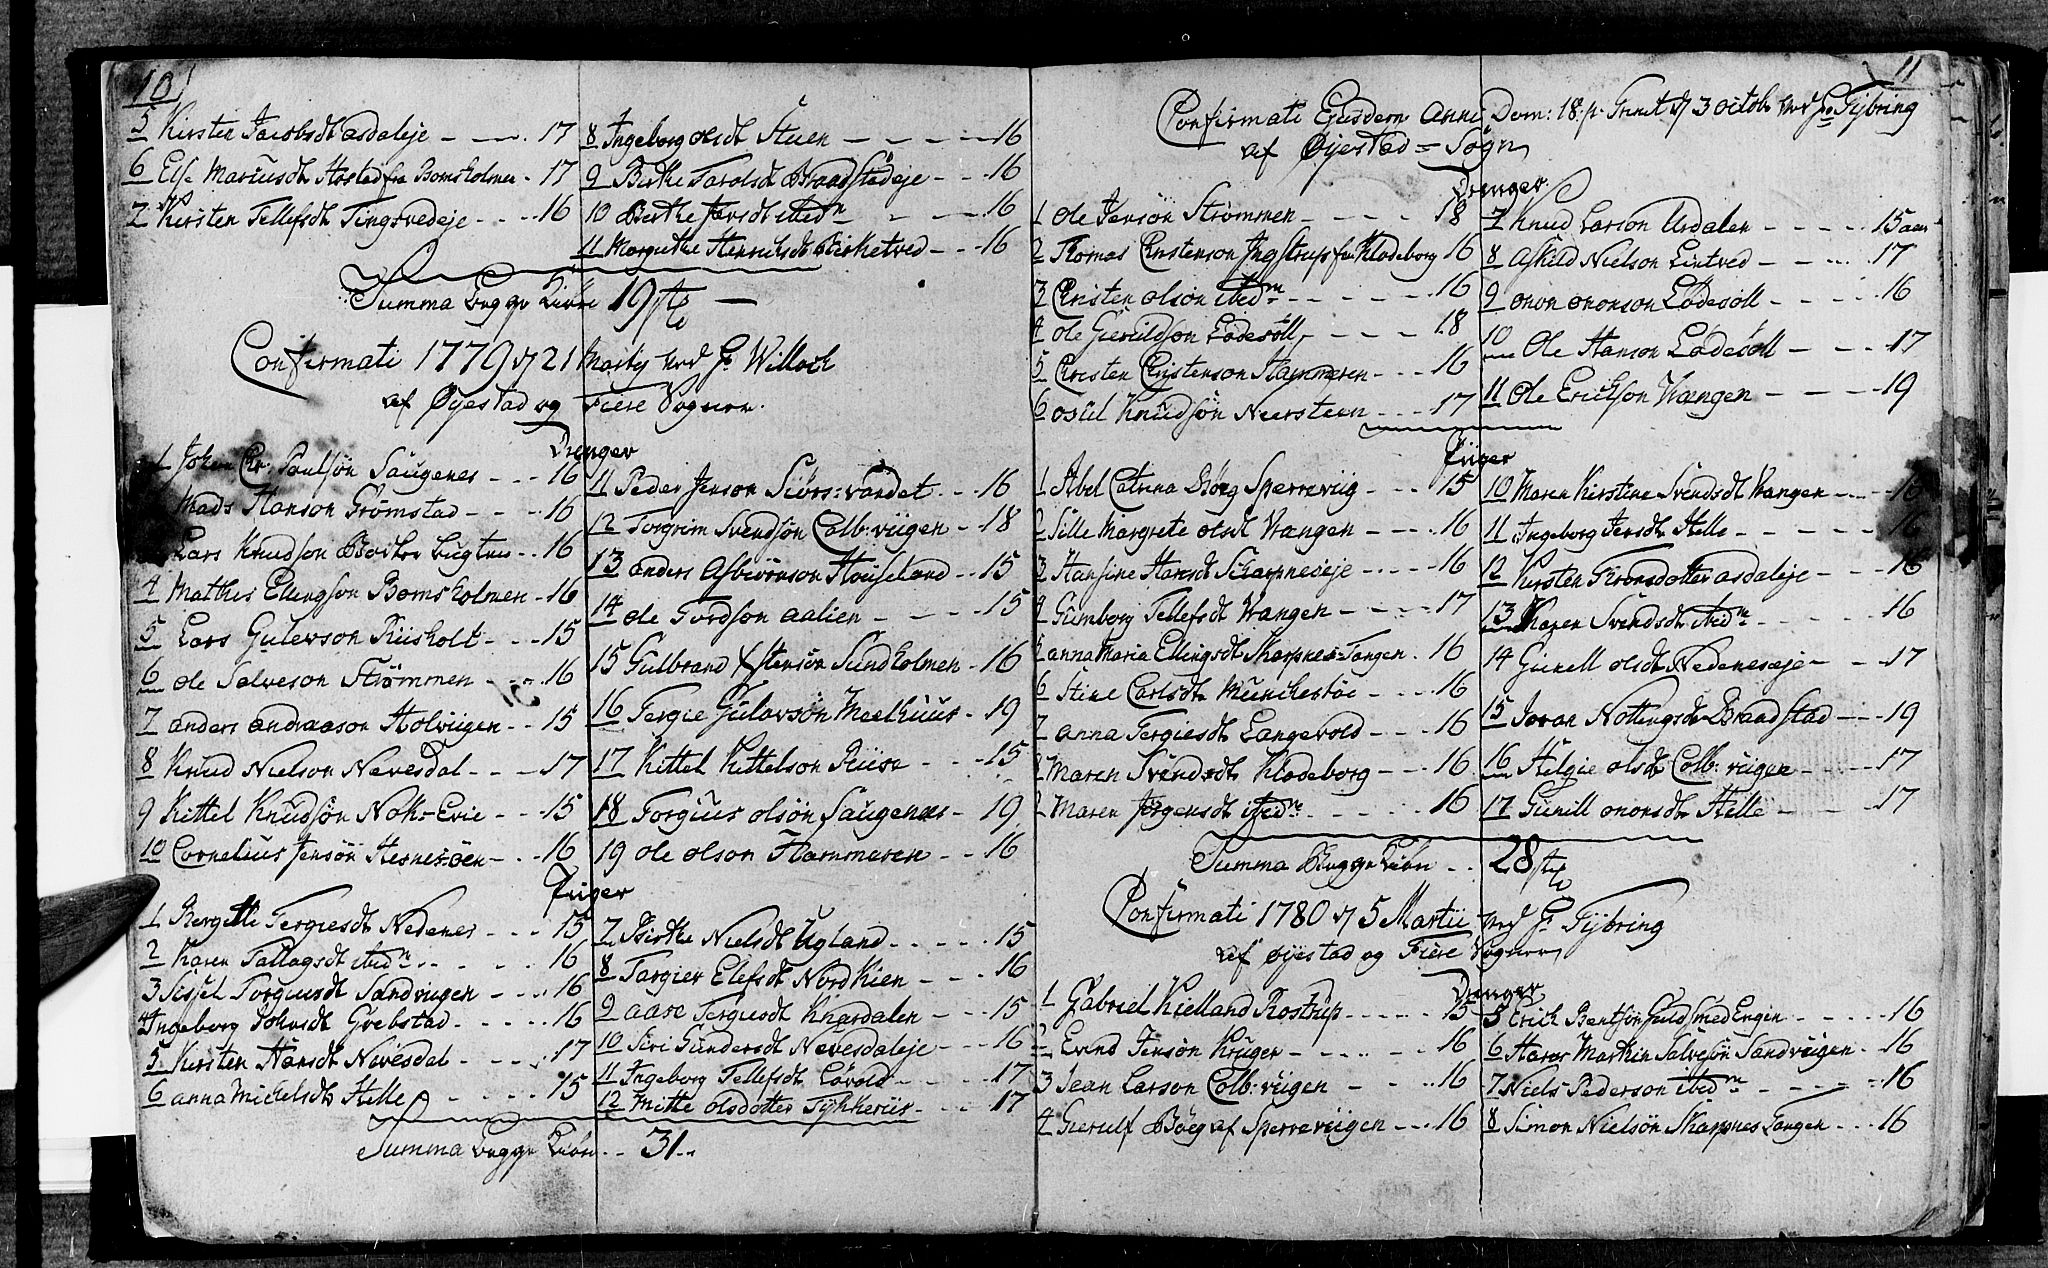 10
5 Kirsten Jacobsdt asdaleje - - - 17
6 Else Mariusdt Hasted fra Bomsholmen - 17
7 Kirsten Tellefsdt Tingsvedeje - - - 16
8 Ingeborg olsdt Stuen - - - - 16
9 Birthe Tarolsd Braadstedeje - - 16
10 Birthe Jensdt ibdm - - - 16
11 Margrethe Henrichsdt Birketved - - - 16
Summa begge Kiøn 19 stk
Confirmati 1779 d 21 Martij ved Hr Willoch
af Øyestad og Fiere Sogner.
Drenger
1 Johan Chr. Paulsøn Saugenes - - 16
Mads Hanson Grømstad - - - 16
Lars Knudson Bierke Lugten - - 16
4 Mathis Ellingson Bomsholmen - 16
5 Lars Gulevson Riisholt - - - 15
6 ole Salveson Strømmen - - - 16
7 anders andraason Holviigen - - 15
8 Knud Nielson Nevesdal - - - 17
9 Kittel Knudsøn Nok-Evie - - - 15
10 Cornelius Jensøn Hesnesøen - - 16
11 Peder Jenson Siørs-vandet - - - 16
12 Torgrim Svendsøn Colb:viigen - 18
13 anders Asbiørnson Houseland - - 15
14 ole Tordson aalien - - - - 15
15 Gulbrand Estensøn Sundholmen - 16
16 Tergie Gulavsøn Meelhuus - 19
17 Kittel Kittelson Riise - - - 15
18 Torgiuus olsøn Saugenæs - 19
19 ole olson Hammeren - - 16
Piiger
1 Bergitte Tergiesdt Nedenes - - - 15
2 Karen Tallagsdt ibdm - - - - 16
3 Sissel Torgiusdt Sandviigen - - - 16
4 Ingeborg Johnsdt Grebstad - - - - 16
5 Kirsten Hansdt Nevesdal - - - - 17
6 anna Michelsdt Helle - - - - 15
7 Birthe Nielsdt Ugland - - - - - 15
8 Targier Elefsdt Nordhien - - - 16
9 aase Tergiesdt Khardalen - - - 15
10 Siri Gundersdt Nevesdaleje - - - 16
11 Ingeborg Tellefsdt Løvold - - - - 17
12 Mitte olsdotter Tykkeriis - - - 17
Summa begge Kiøn - - 31 - -
11
Confirmati Ejusdem Anni Dom: 18 p Trinit d 3 octobr ved Hr Tybring
af Øyestad = Sogn
Drenger
1 ole Jensøn Strømmen - - - - 18
2 Thomas Christenson Jngstrup fra Klodeborg 16
3 Christen olsøn ibdm - - - - - 16
4 ole Gieruldson Lødesøll - - - - 18
5 Christen Christenson Hammeren - - - 16
6 oslel Knudsøn Neersteen - - - 17
7 Knud Larson Assdalen - - - - 15 aar
8 Askild Nielson Lintved - - - - 17
9 onon ononson Lødesøll - - - 16
10 Ole Hanson Lødesøll - - - 17
11 Ole Erickson Vrangen - - - - 19
Piiger
1 Abel Catrina Bøeg Sperreviig - - - 15
2 Sille Margrete olsdt Vrangen - - - 16
3 Hansine Hansdt Skarpnedeje - - - 16
4 Gumborg Tellefsdt Vrangen - - - 17
5 anna Maria Ellingsdt Skarpnes-Tangen - 16
6 Stine Carlsdt Munchestøe - - - 16
7 anna Tergiesdt Langevold - - - 16
8 Maren Svendsdt Klodeborg - - - 16
9 Maren Jørgensdt ibidm - - - - - 16
10 Maren Kirstine Svendsdt Vrangen - - - 16
11 Ingeborg Jensdt Helle - - - - - 16
12 Kirsten Tronsdotter asdaleje - - - 16
13 Karen Svendsdt ibdm - - - - 16
14 Gunell olsdt Nedeneseje - - - 17
15 Joran Nottengsdt Braadstad - - - 19
16 Helgie olsdt Colb:viigen - - - - 17
17 Gunill ononsdt Helle - - - - 17
Summa Begge Kiøn - - 28 stk
Confirmati 1780 d 5 Martii ved Hr Tybring
af Øyestad og Fiere Sogner
Drenger
1 Gabriel Kielland Rostrup - - - - - 15
2 Evind Jensøn Krüger - - - - - 16
3 Jean Larson Colb:viigen - - - 16
4 Gierulf Bøeg af Sperreviigen - - 16
5 Erich Bentsøn Guldsmed Engen - - - - 16
6 Hans Marthin Salvesøn Sandviigen - 16
7 Niels Pederson ibdm - - - - - 16
8 Simon Nielsøn Skarpnes Tangen - - - 16